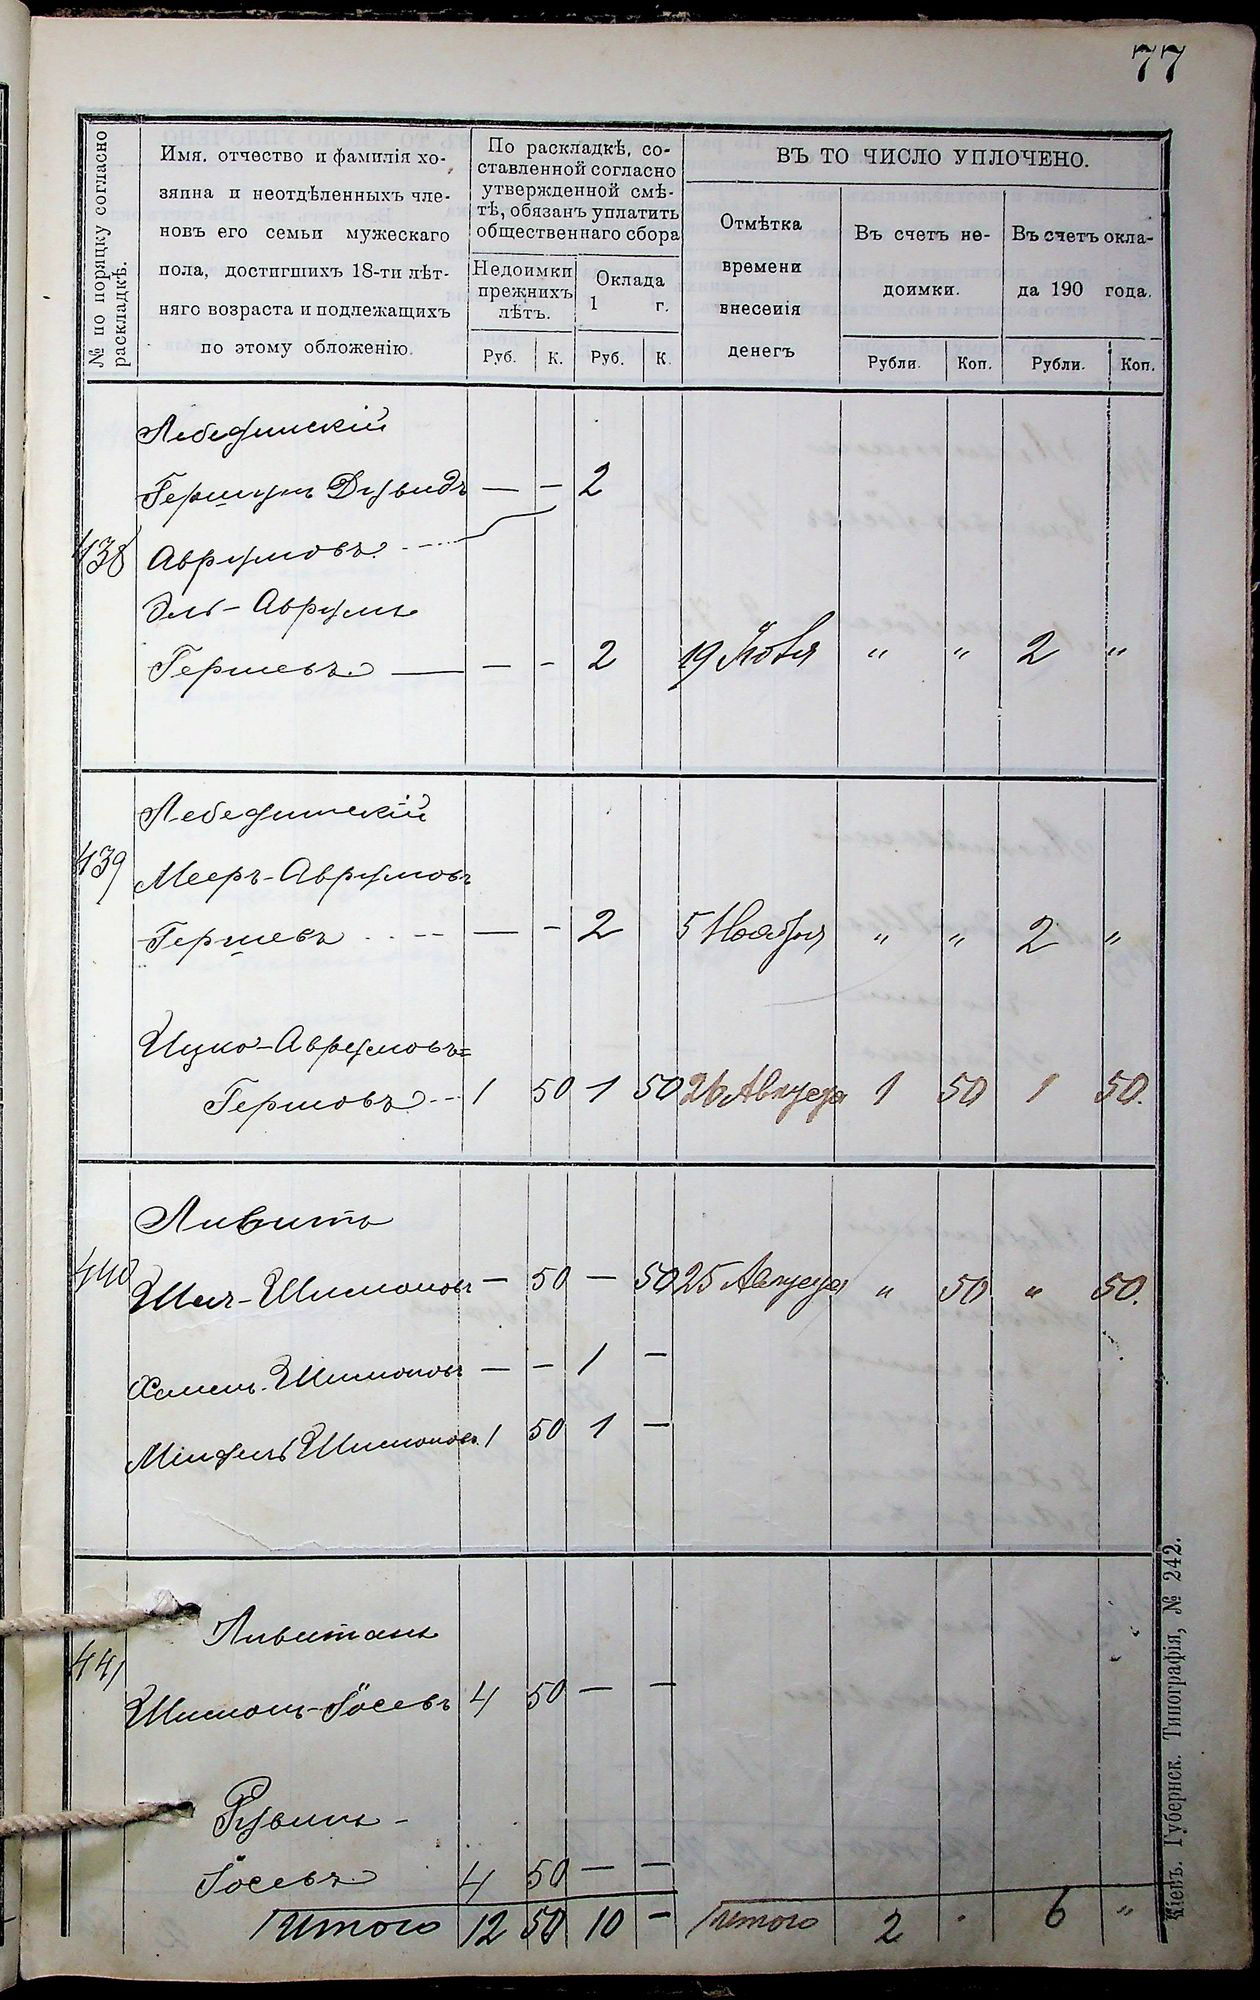 77
№ по порядку согласно раскладкѣ.
Имя, отчество и фамилія хо-
зяина и неотдѣленныхъ чле-
новъ его семьи мужескаго
пола, достигшихъ 18-ти лѣт-
няго возраста и подлежащихъ
по этому обложенію.
По раскладкѣ, со-
ставленной согласно
утвержденной смѣ-
тѣ, обязанъ уплатить
общественнаго сбора
Недоимки
прежнихъ
лѣтъ.
Оклада
1 г.
Руб. К. Руб. К.
ВЪ ТО ЧИСЛО УПЛОЧЕНО.
Отмѣтка
времени
внесенія
денегъ
Въ счетъ не-
доимки.
Въ счетъ окла-
да 190 года.
Рубли. Коп. Рубли. Коп.
438
Лебединскій
Гершун Дувидъ — — 2
Аврумовъ
Эль-Аврумъ
Гершевъ — — — 2 19 Ноя „ „ 2 „
439
Лебединскій
Мееръ-Аврумовъ
Гершевъ — — 2 5 Ноября „ „ 2 „
Ицко-Аврумовъ=
Гершовъ 1 50 1 50 26 Августа 1 50 1 50.
440
Ливитъ
Шимоновъ — 50 — 50 25 Августа „ 50 „ 50.
Шимоновъ — — 1 —
Шимоновъ 1 50 1 —
441
Ливитанъ
Шимонъ-Іосевъ 4 50 — —
Рувинъ -
Іосевъ 4 50 — —
Итого 12 50 10 — Итого 2 6 „
Кіевъ. Губернск. Типографія, № 242.